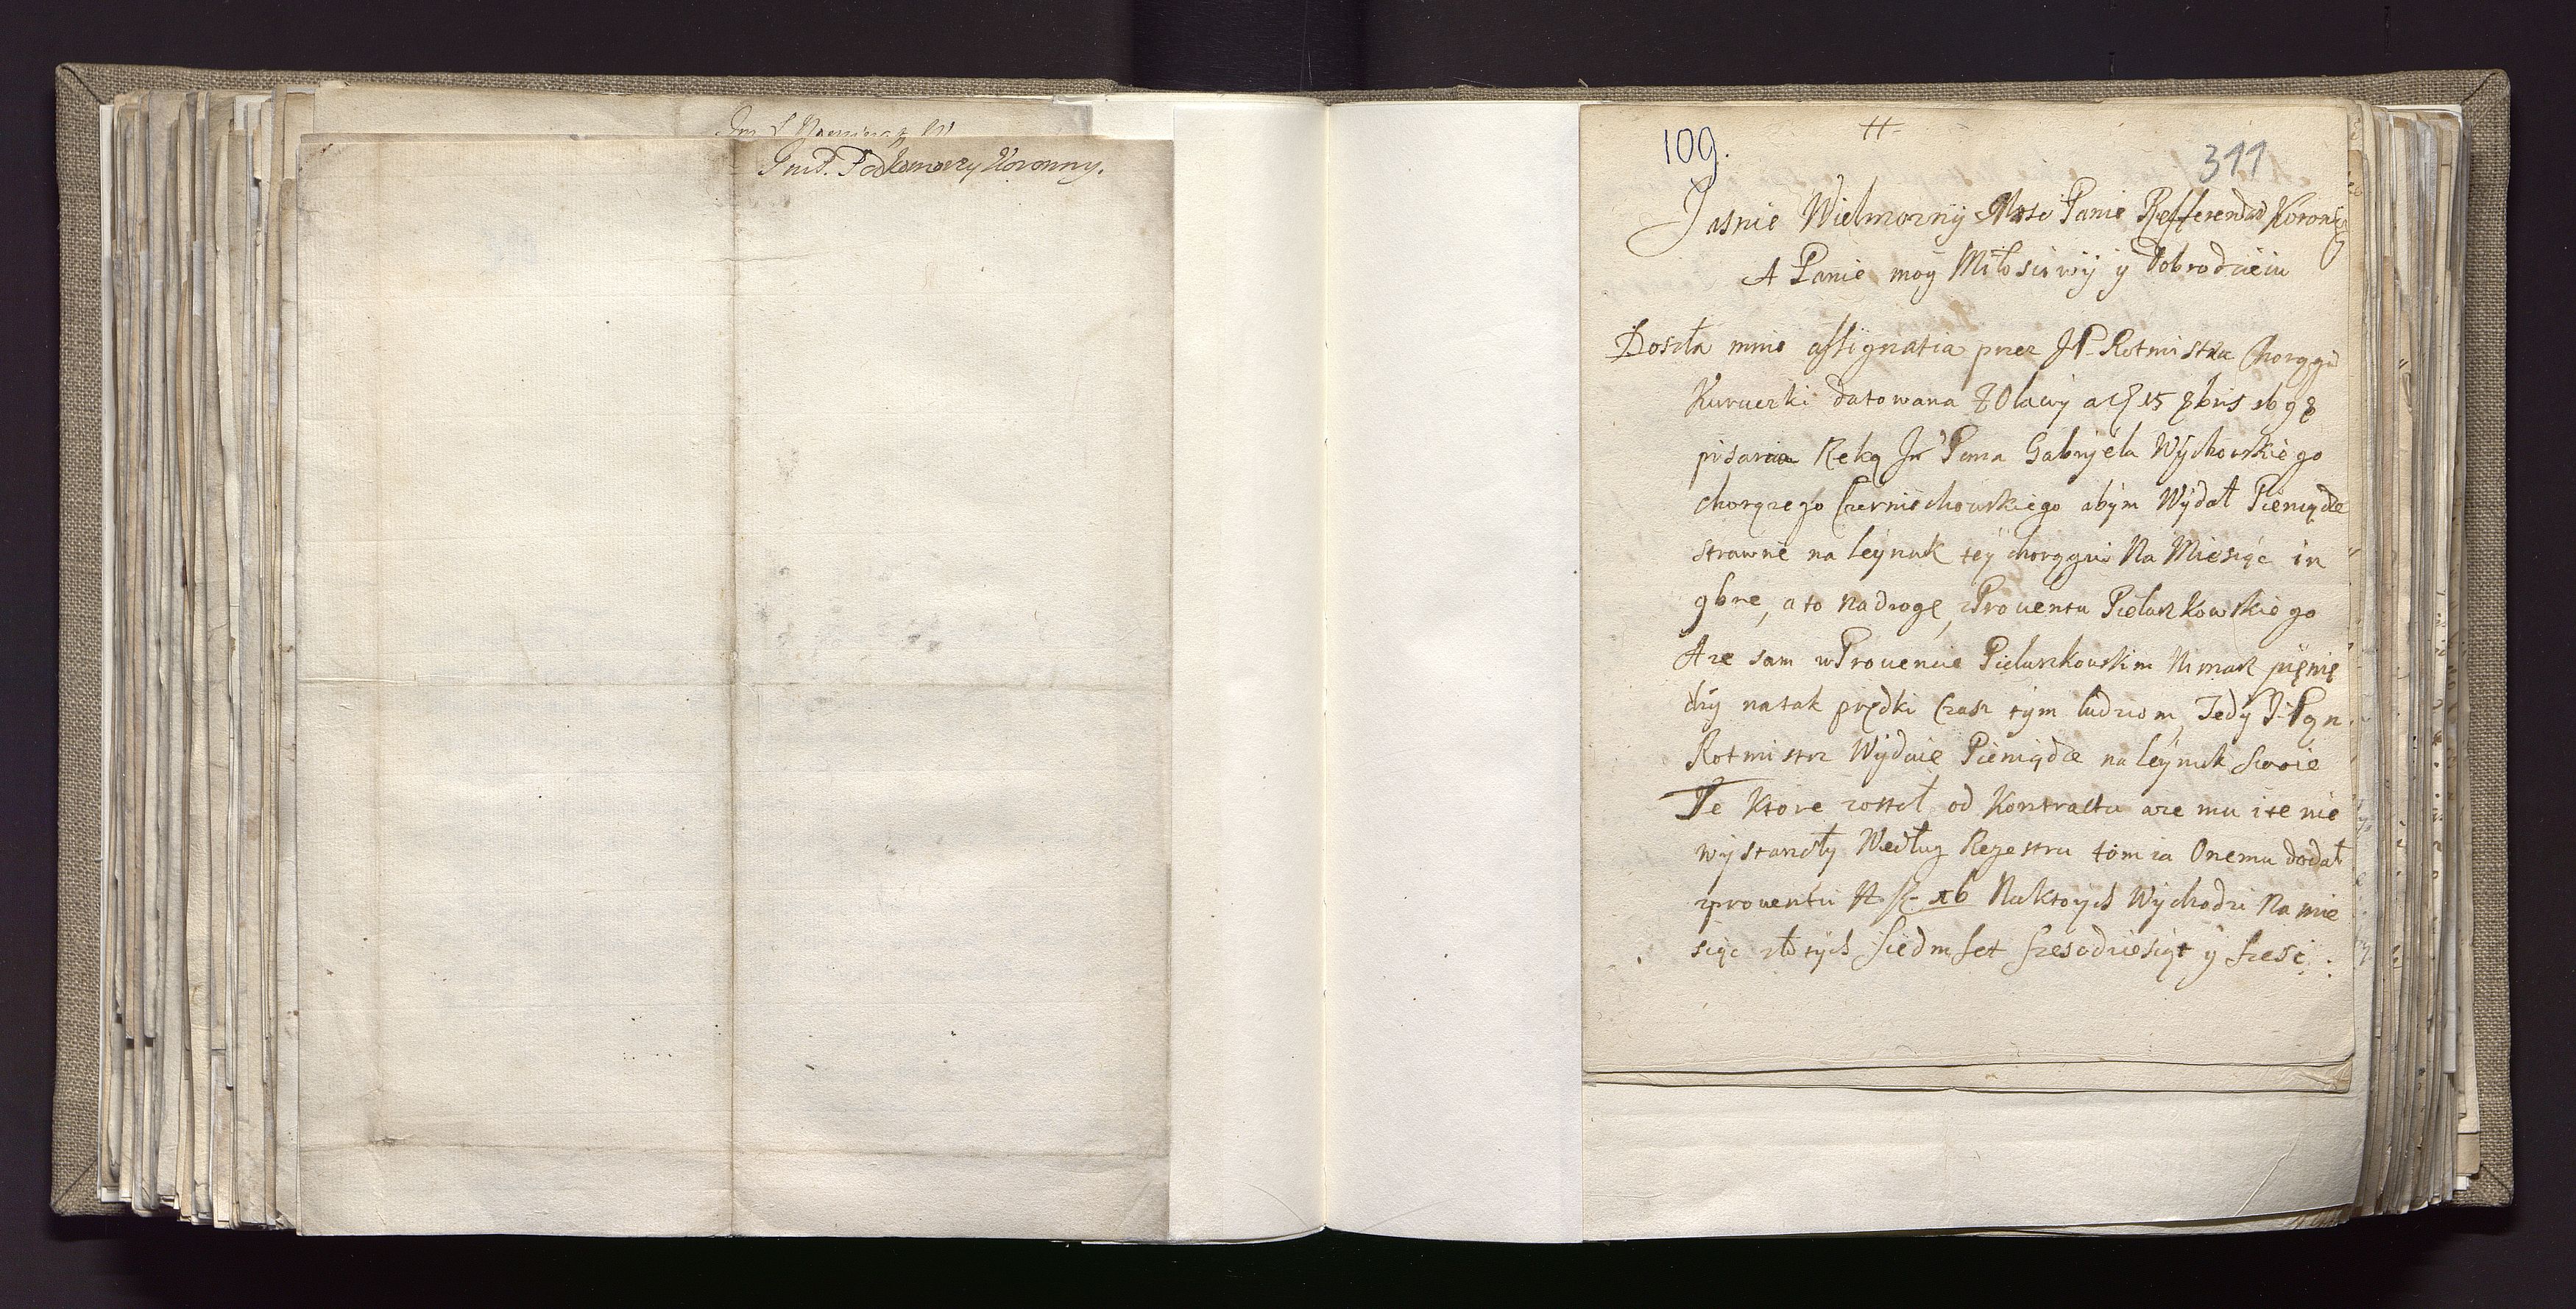 Jmć. Podkomorzy Koronny.
109.
311
Jasnie Wielmozny Mosci Panie Refferendarz Koronny
A Panie moy Miłosciwy y Dobrodzieiu
Doszła mine assignatia przez JP. Rotmistrza Chorągwi
Kurucski datowana z Olawy 15 8bris 1698
pisana Ręką Jm Pana Gabryela Wychowskiego
chorązego Czerniechowskiego abym Wydał Pieniądze
strawne na leynuk tey chorągwi Na Miesiąc in
9bre, a to na drogę, z Prouentu Pielaszkowskiego
A ze sam w Prouencie Pielaszkowskim Nimasz pienię
dzy na tak prędki Czasz tym ludziom, Tedy J. Pan
Rotmistrz Wydaie Pieniądze na leynuk swoie
Te ktore został od Kontraktu a ze mu i te nie
wystarczły Według Regestru tom ia Onemu dodał
z prouentu 16 Na ktorych Wychodzi Na mie
siąc złotych siedmset szescdziesiąt y szesc